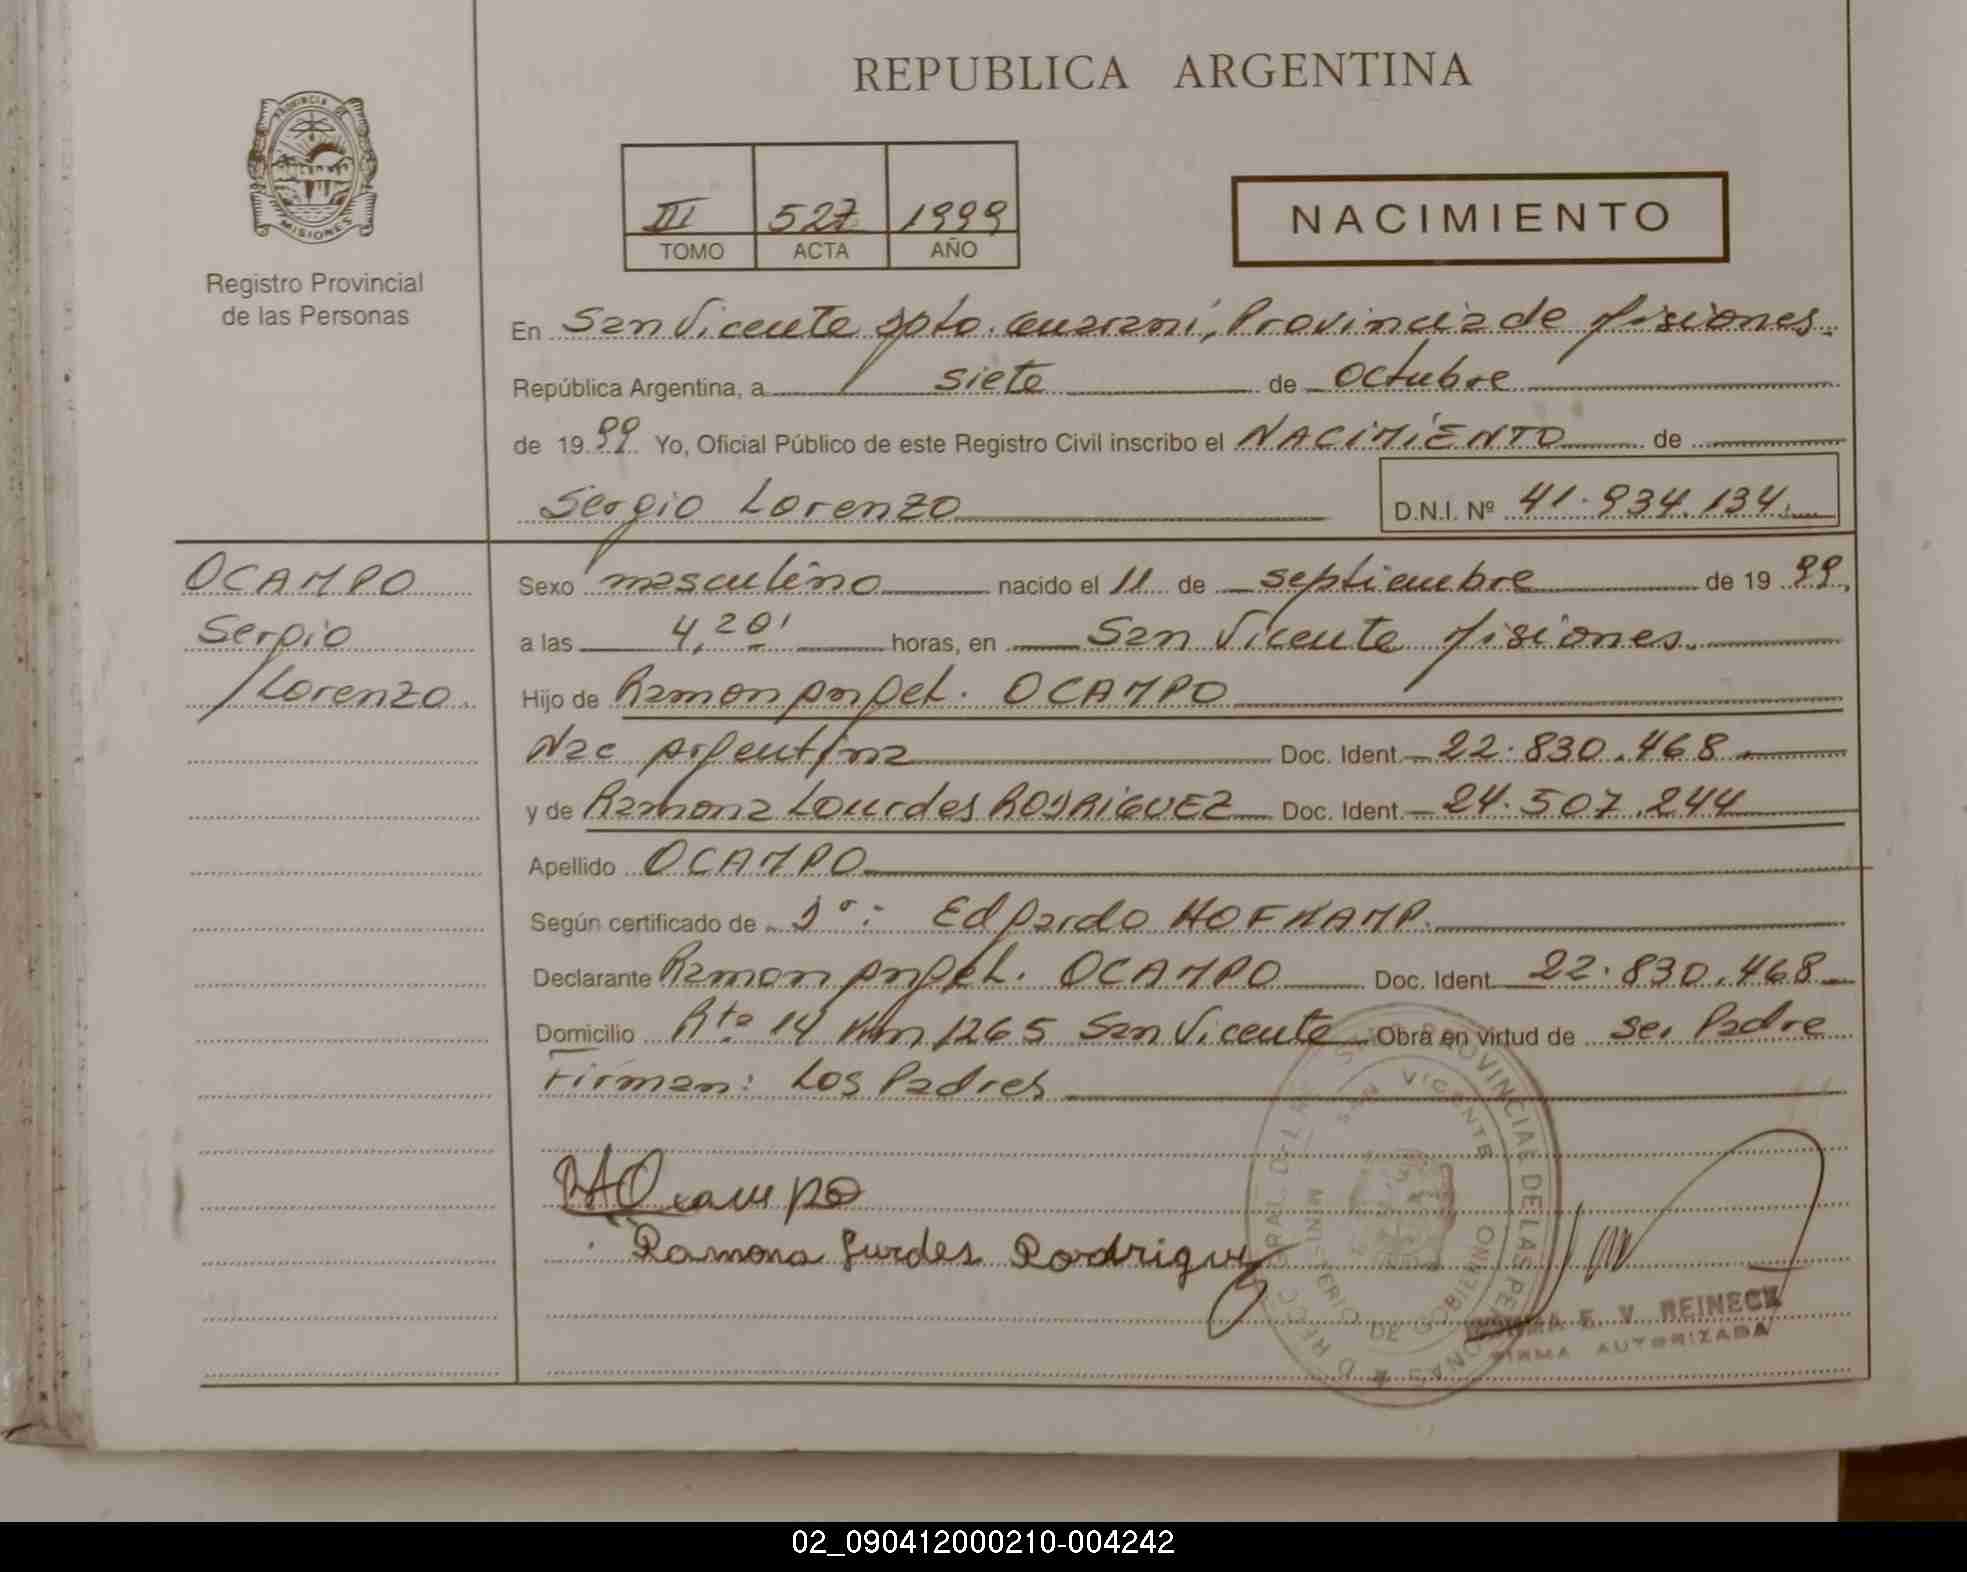 REPUBLICA ARGENTINA
PROVINCIA DE
MISIONES
Registro Provincial
de las Personas
III 527 1999
TOMO ACTA AÑO
NACIMIENTO
En San Vicente Dpto. Guarani, Provincia de Misiones.
República Argentina, a siete de Octubre
de 1999 Yo, Oficial Público de este Registro Civil inscribo el NACIMIENTO de
Sergio Lorenzo D.N.I. Nº 41.934.134
OCAMPO
Sergio
Lorenzo.
Sexo masculino nacido el 11 de septiembre de 1999,
a las 4,20' horas, en San Vicente Misiones.
Hijo de Ramon Angel. OCAMPO
Nac Argentina Doc. Ident. 22.830.468
y de Ramona Lourdes RODRIGUEZ Doc. Ident. 24.507.244
Apellido OCAMPO
Según certificado de Edgardo HOFKAMP.
Declarante Ramon Angel. OCAMPO Doc. Ident. 22.830.468
Domicilio Rta 14 Km 1265 San Vicente Obra en virtud de ser Padre
Firman: Los Padres
RAOcampo
Ramona Lurdes Rodriguez
PROVINCIAL DE LAS PERSONAS
SAN VICENTE
MINISTERIO DE GOBIERNO
E. V. REINECK
FIRMA AUTORIZADA
02_090412000210-004242